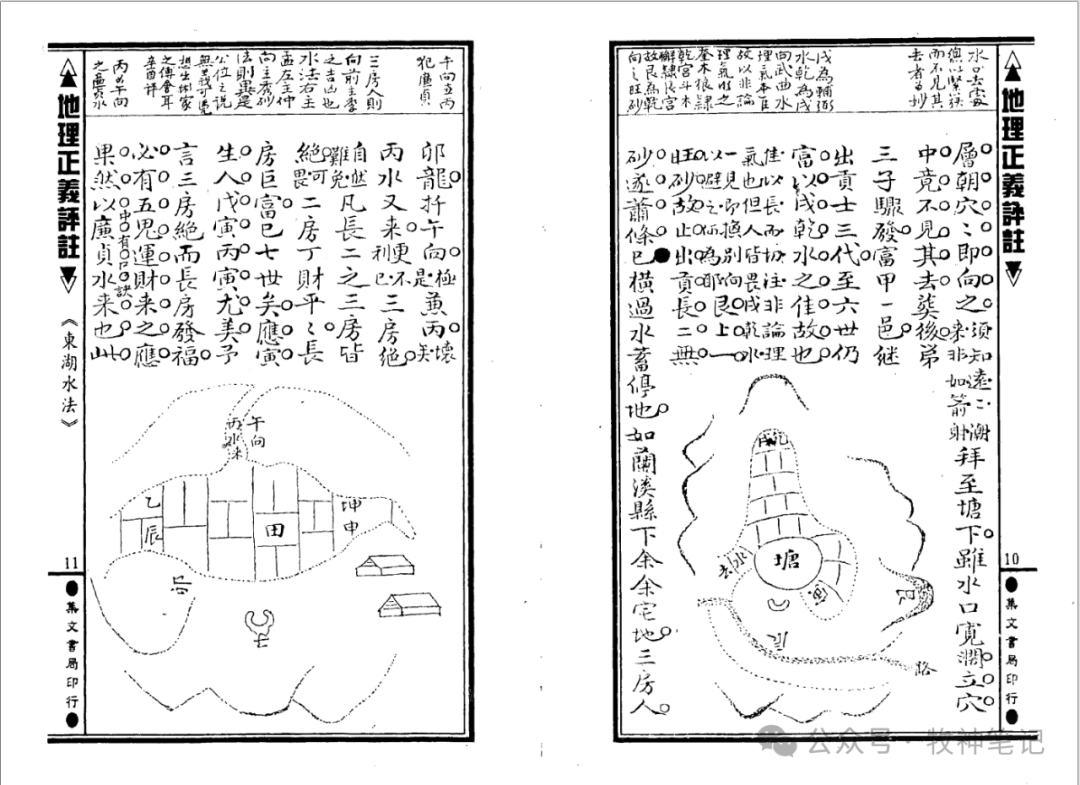 地理正義評註
10
集文書局印行
水口去處
總以緊狹
而不見其
去者為妙
戌為輔弼
水乾為戌
向武曲水
理氣本旺
故以非論
理氣形之
奎木狼隸
乾宮斗木
獬隸艮宮
故艮為乾
向之旺砂
層朝穴〻即向之須知遠〻潮来非如箭射拜至塘下雖水口寬濶立穴
中竟不見其去葬後弟
三子驟發富甲一邑継
出貢士三代至六世仍
富以戌乾水之佳故也
佳以長而城注非論理
氣也但人皆畏戌乾水
一見即換別向艮上一
以避之何為耶
旺砂故止出貢長二無
砂遂蕭條
橫過水蓄停地如蘭溪縣下余余宅地三房人
乾
戌
塘
水去
艮
辰
路
地理正義評註
《東湖水法》
11
集文書局印行
午向豆丙
犯廉貞
三房人則
向前主季
之吉凶也
水法右主
孟左主仲
向主季砂
法則異是
公位之說
無義郭氏
想出術家
之傅會耳
辛酉評
丙為午向
之廉貞水
卯龍扦午向極是兼丙壞矣
丙水又来更不利已三房絕
自然難免凡長二之三房皆
絕可畏二房丁財平〻長
房巨富已七世矣應寅
生人戊寅丙寅尤美予
言三房絕而長房發福
必有五鬼運財来之應
果然以廉貞水来也此中有口訣
午向
丙水来
乙
辰
田
坤
申